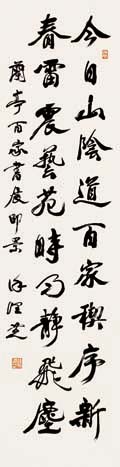 今日山陰道百家禊序新
春雷震藝苑時雨靜飛塵
蘭亭百家書展即景